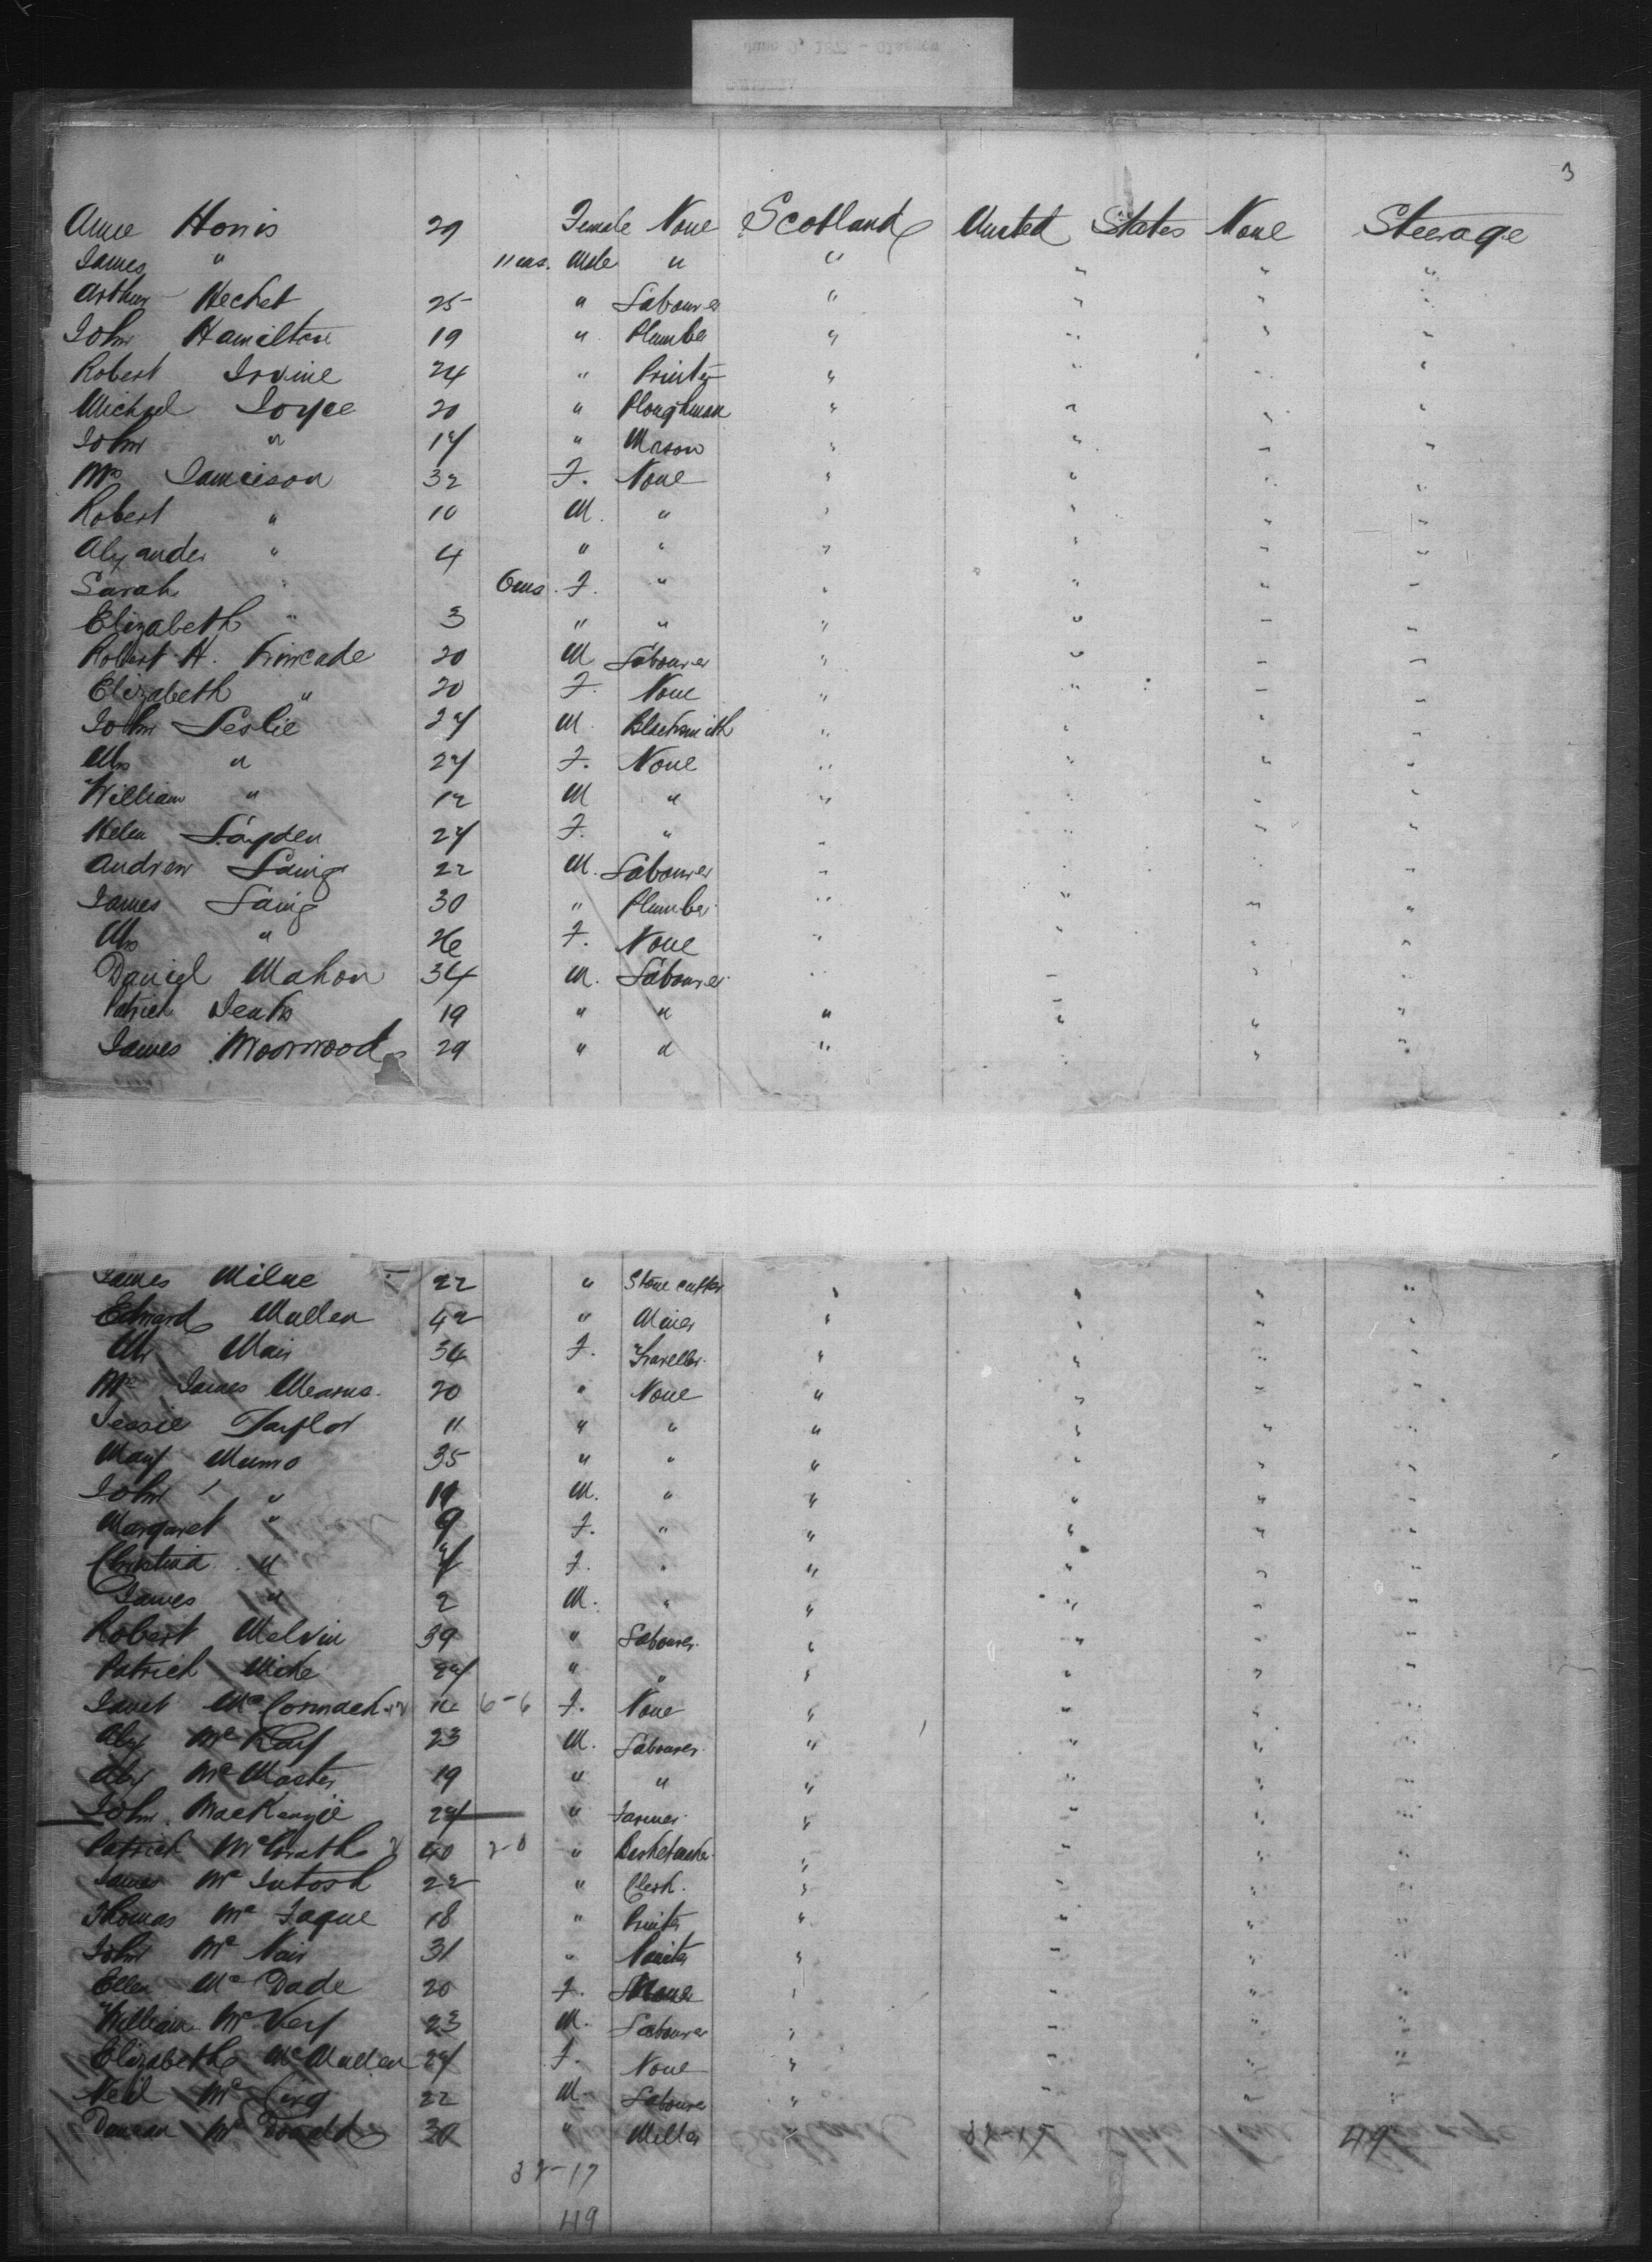 3
Anne Harris 29 Female None Scotland United States None Steerage
James " 11 ms. Male " " " " "
Arthur Hechet 25 " Labourer " " " "
John Hamilton 19 " Plumber " " " "
Robert Irvine 24 " Printer " " " "
Michael Joyce 20 " Ploughman " " " "
John " 17 " Mason " " " "
Mrs Jamieson 32 F. None " " " "
Robert " 10 M. " " " " "
Alexander " 4 " " " " " "
Sarah " 6 ms. F. " " " " "
Elizabeth " 3 " " " " " "
Robert H. Kincade 20 M Labourer " " " "
Elizabeth " 20 F. None " " " "
John Leslie 27 M. Blacksmith " " " "
Mrs " 27 F. None " " " "
William " 12 M " " " " "
Helen Layden 27 F. " " " " "
Andrew Laing 22 M. Labourer " " " "
James Laing 30 " Plumber " " " "
Mrs " 26 F. None " " " "
Daniel Mahon 34 M. Labourer " " " "
Patrick 19 " " " " " "
James Moorwood 29 " " " " " "
James Milne 22 " Stone cutter " " " "
Edward Mullen 42 " Miner " " " "
Mr Mair 34 F. Traveller " " " "
Mrs James Mearns 20 " None " " " "
Jessie Taylor 11 " " " " " "
Mary Munro 35 " " " " " "
John " 11 M. " " " " "
Margaret " 9 F. " " " " "
Christina " 7 F. " " " " "
James " 2 M. " " " " "
Robert Melvin 39 " Labourer " " " "
Patrick Mike 27 " " " " " "
Janet McCormack 6-6 F. None " " " "
Alex McKay 23 M. Labourer " " " "
Alex McMaster 19 " " " " " "
John MacKenzie 27 " Farmer " " " "
Patrick McGrath 40 2-0 " Basketmaker " " " "
James McIntosh 22 " Clerk " " " "
Thomas McJaque 18 " Printer " " " "
John McNair 31 " " " " "
Ellen McDade 20 F. None " " " "
William McVey 23 M. Labourer " " " "
Elizabeth McMullen 27 F. None " " " "
Neil 22 M. Labourer " " " "
Duncan McDonald 30 " Miller " 49
32-17
49